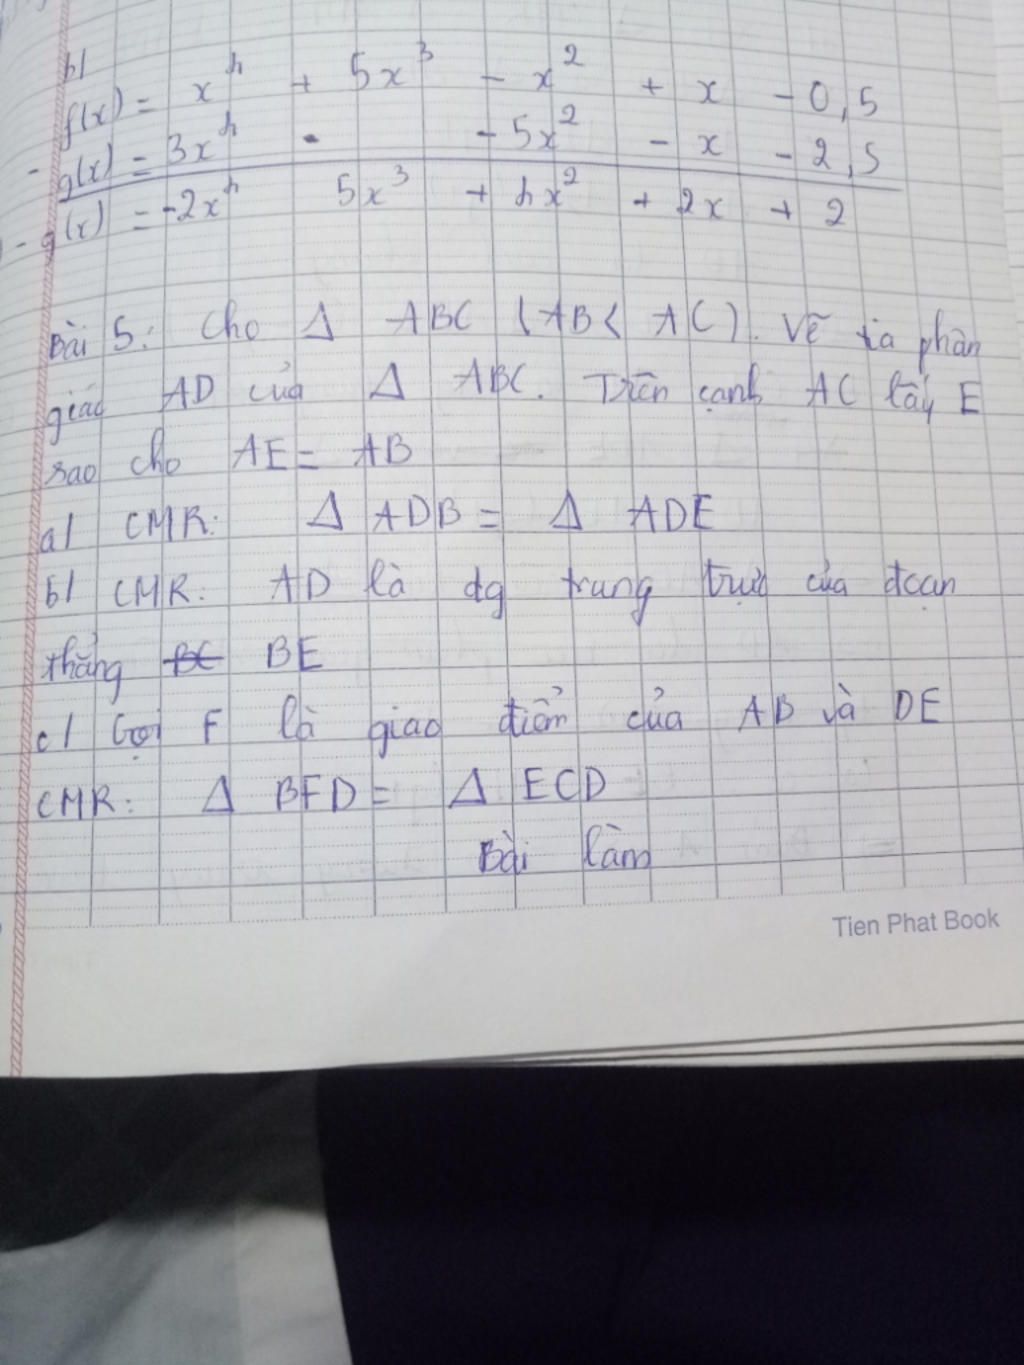 b/
f(x) = x⁴ + 5x³ - x² + x - 0,5
- g(x) = 3x⁴ - 5x² - x - 2,5
- g(x) = -2x⁴ 5x³ + 4x² + 2x + 2
Bài 5: Cho Δ ABC (AB< AC). Vẽ tia phân
giác AD của Δ ABC. Trên cạnh AC lấy E
sao cho AE = AB
a/ CMR: Δ ADB = Δ ADE
b/ CMR: AD là dg trung trực của đoạn
thẳng BC BE
c/ Gọi F là giao điểm của AB và DE
CMR: Δ BFD = Δ ECD
Bài làm
Tien Phat Book